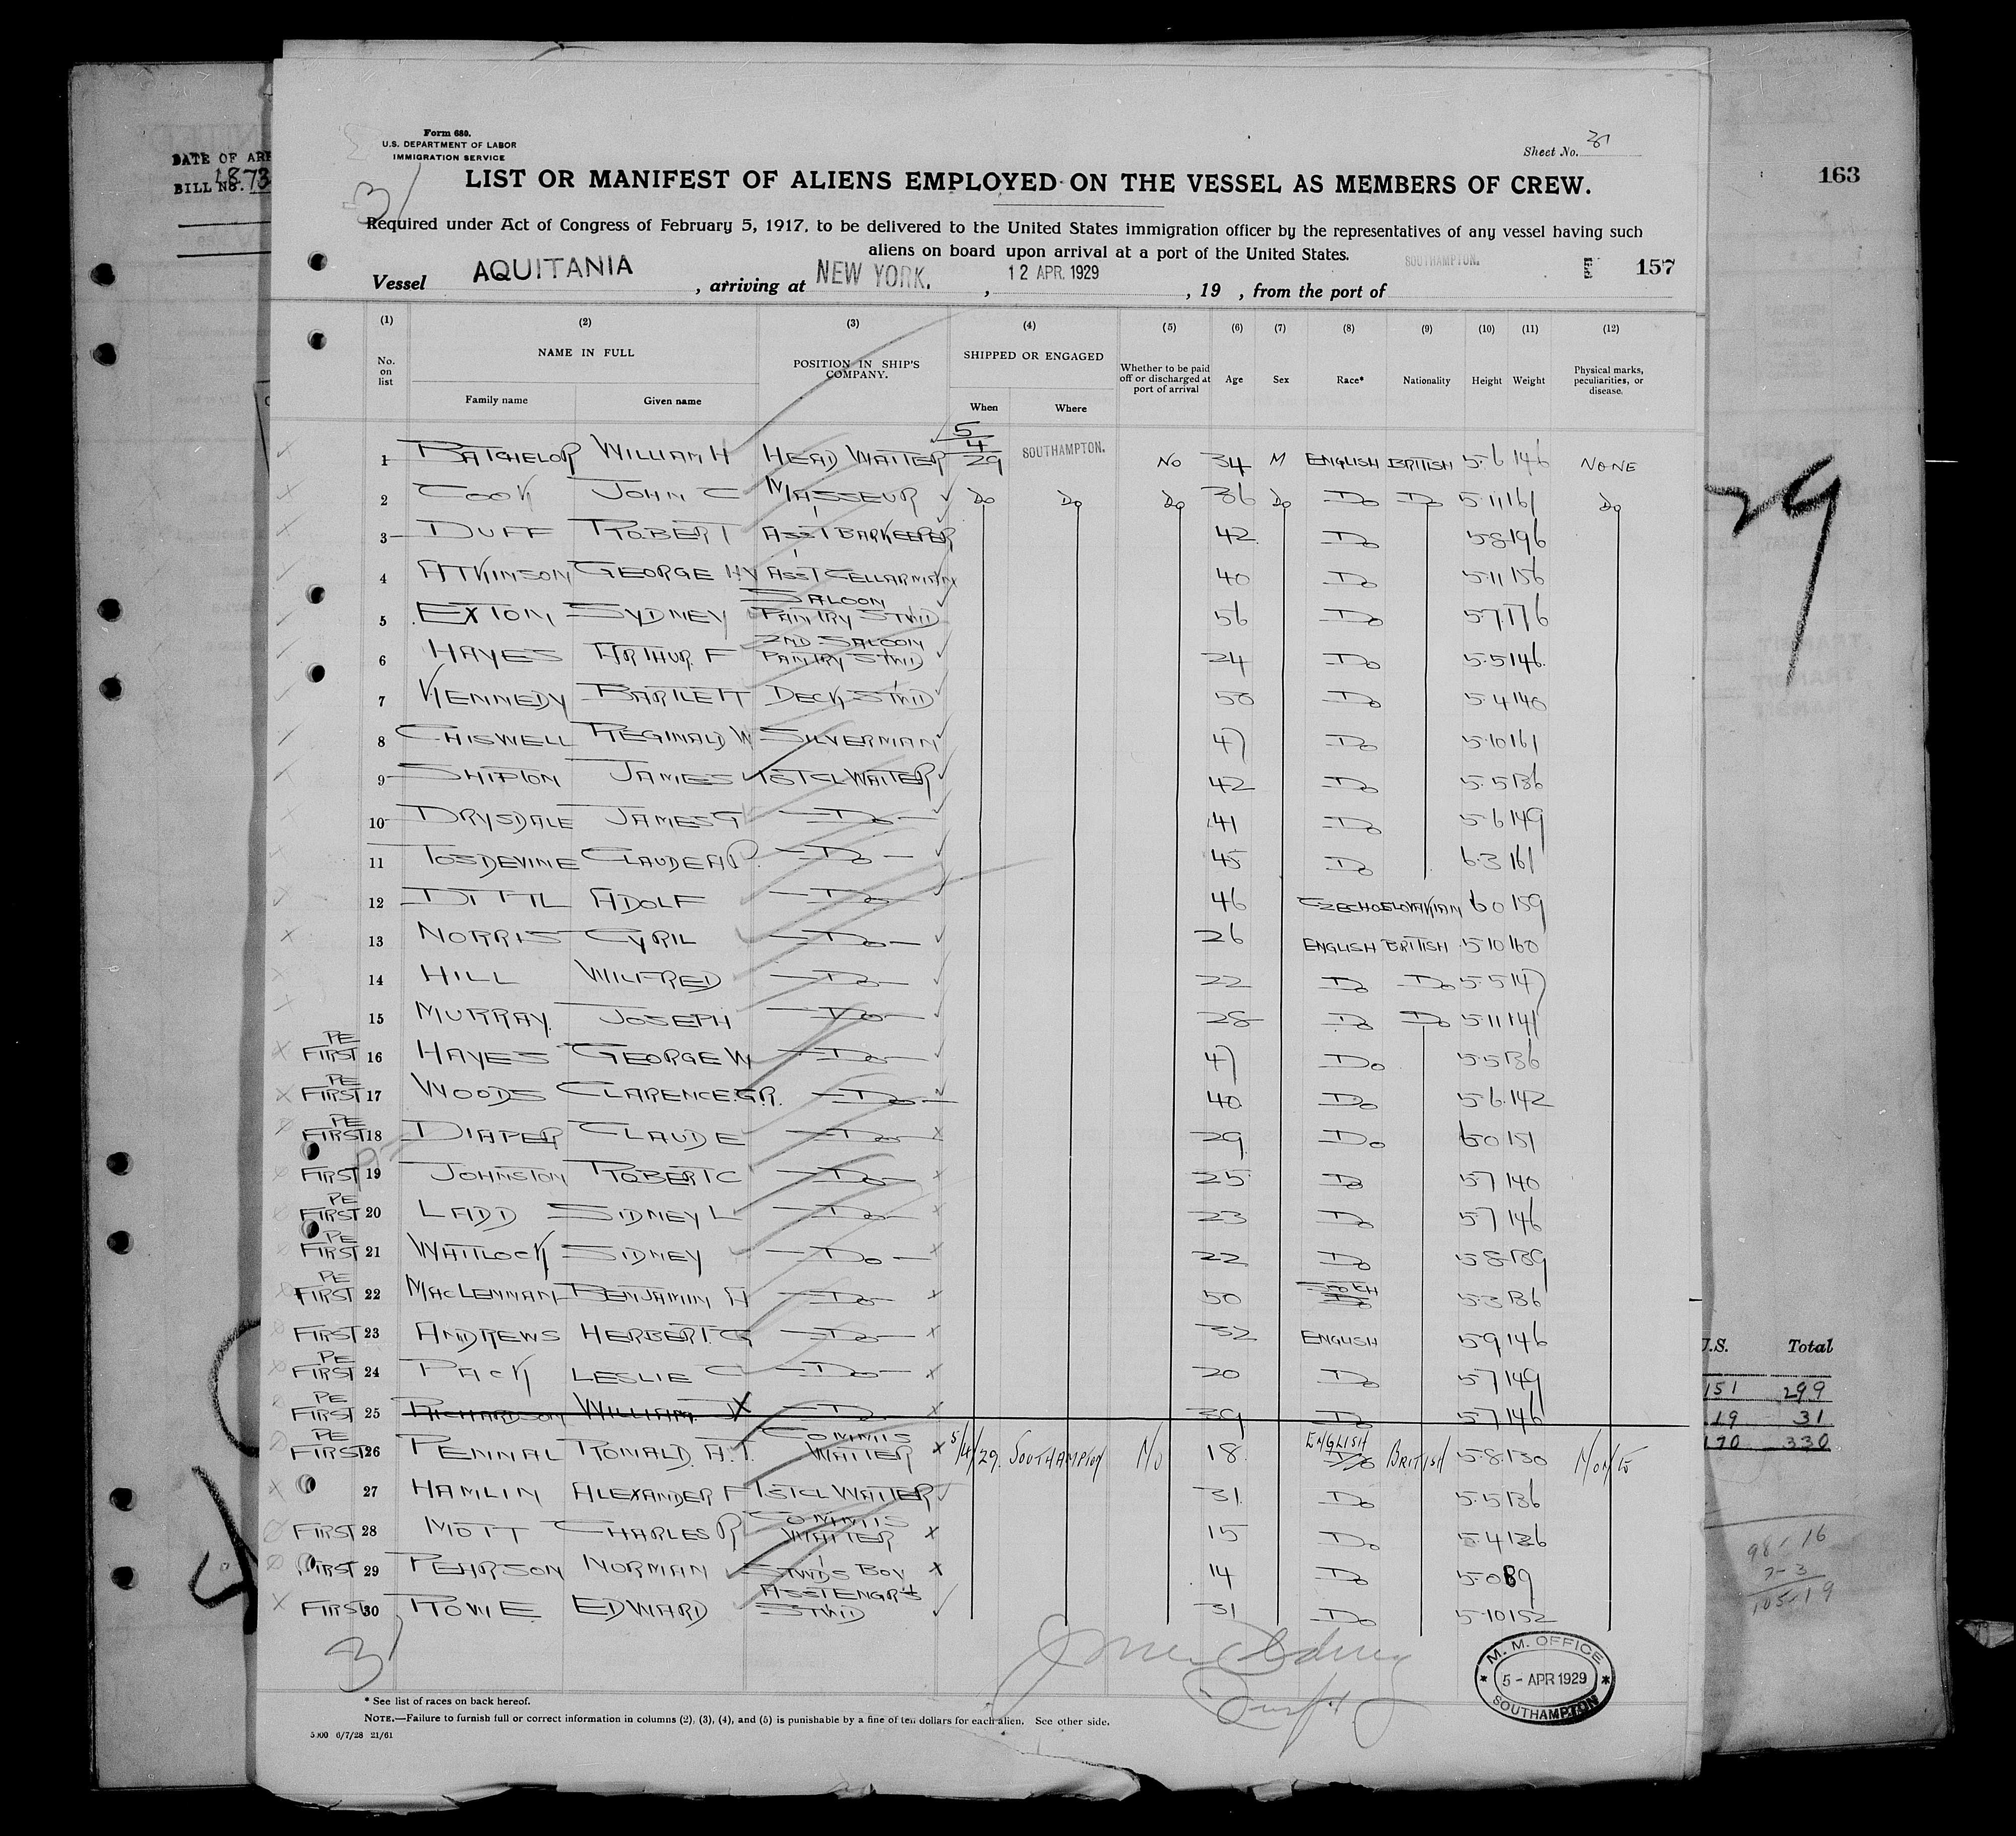 DATE OF ARR
BILL No. 1873
Form 680.
U.S. DEPARTMENT OF LABOR
IMMIGRATION SERVICE
Sheet No. 31
31
LIST OR MANIFEST OF ALIENS EMPLOYED ON THE VESSEL AS MEMBERS OF CREW.
163
Required under Act of Congress of February 5, 1917, to be delivered to the United States immigration officer by the representatives of any vessel having such
aliens on board upon arrival at a port of the United States.
Vessel AQUITANIA, arriving at NEW YORK., 12 APR. 1929, 19 , from the port of SOUTHAMPTON. 157
(1) (2) (3) (4) (5) (6) (7) (8) (9) (10) (11) (12)
No. on list NAME IN FULL POSITION IN SHIP'S COMPANY. SHIPPED OR ENGAGED Whether to be paid off or discharged at port of arrival Age Sex Race* Nationality Height Weight Physical marks, peculiarities, or disease.
Family name Given name When Where
1 BATCHELOR WILLIAM H HEAD WAITER 5/4/29 SOUTHAMPTON. NO 34 M ENGLISH BRITISH 5·6 146 NONE
2 COOK JOHN C MASSEUR Do Do Do 36 Do Do Do 5·11 161 Do
3 DUFF ROBERT ASS'T BARKEEPER 42 Do 5·8 196
4 ATKINSON GEORGE HY ASS'T CELLARMAN 40 Do 5·11 156
5 EXTON SYDNEY SALOON PANTRY STWD 56 Do 5·7 176
6 HAYES ARTHUR F 2ND SALOON PANTRY STWD 24 Do 5·5 146
7 KENNEDY BARTLETT DECK STWD 50 Do 5·4 140
8 CHISWELL REGINALD W SILVERMAN 47 Do 5·10 161
9 SHIPTON JAMES 1ST CL WAITER 42 Do 5·5 136
10 DRYSDALE JAMES G Do 41 Do 5·6 149
11 TOSDEVINE CLAUDE A P. Do 45 Do 6·3 161
12 DITTL ADOLF Do 46 CZECHOSLOVAKIAN 6·0 159
13 NORRIS CYRIL Do 26 ENGLISH BRITISH 5·10 160
14 HILL WILFRED Do 22 Do Do 5·5 147
15 MURRAY. JOSEPH Do 28 Do Do 5·11 141
PE FIRST 16 HAYES GEORGE W Do 47 Do 5·5 136
PE FIRST 17 WOODS CLARENCE.G.R. Do 40 Do 5·6 142
PE FIRST 18 DIAPER CLAUDE Do 29 Do 6·0 151
FIRST 19 JOHNSTON ROBERT C Do 25 Do 5·7 140
PE FIRST 20 LADD SIDNEY L Do 23 Do 5·7 146
PE FIRST 21 WHITLOCK SIDNEY Do 22 Do 5·8 139
PE FIRST 22 MACLENNAN BENJAMIN A Do 50 SCOTCH 5·3 136
FIRST 23 ANDREWS HERBERT. G Do 32 ENGLISH 5·9 146
PE FIRST 24 PACK LESLIE C Do 20 Do 5·7 149
PE FIRST 25 RICHARDSON WILLIAM. J Do 39 Do 5·7 146
PE FIRST 26 PENNAL RONALD. A.T. COMMIS WAITER 5/4/29. SOUTHAMPTON NO 18 ENGLISH Do BRITISH 5·8 130 NONE
27 HAMLIN ALEXANDER F 1ST CL WAITER 31 Do 5·5 136
FIRST 28 MOTT CHARLES R COMMIS WAITER 15 Do 5·4 126
FIRST 29 PEARSON NORMAN STWDS BOY 14 Do 5·0 89
FIRST 30 ROWE EDWARD ASST ENGR'S STWD 31 Do 5·10 152
31
M. M. OFFICE
5 - APR 1929
SOUTHAMPTON
* See list of races on back hereof.
NOTE.—Failure to furnish full or correct information in columns (2), (3), (4), and (5) is punishable by a fine of ten dollars for each alien. See other side.
5000 6/7/28 21/61
29
U.S. Total
151 299
19 31
170 330
98 / 16
7 - 3
105 - 19